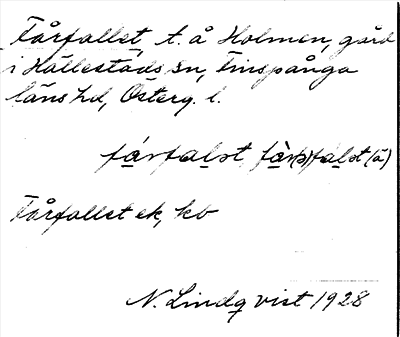 Fårfallet, t. å Holmen, gård
i Hällestads sn, Finspånga
läns hd, Österg. l.
fårfalst får(s)falst (ä)
Fårfallet ek, kb
N. Lindqvist 1928